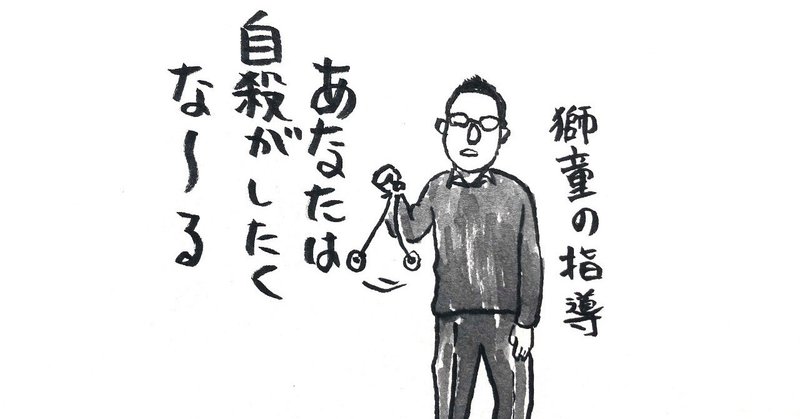 獅童の指導
あなたは
自殺がしたく
な〜る